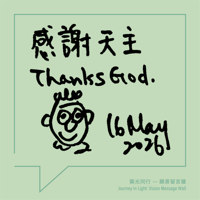 感謝天主
Thanks God.
16 May
2026
與光同行 — 願景留言牆
Journey in Light: Vision Message Wall